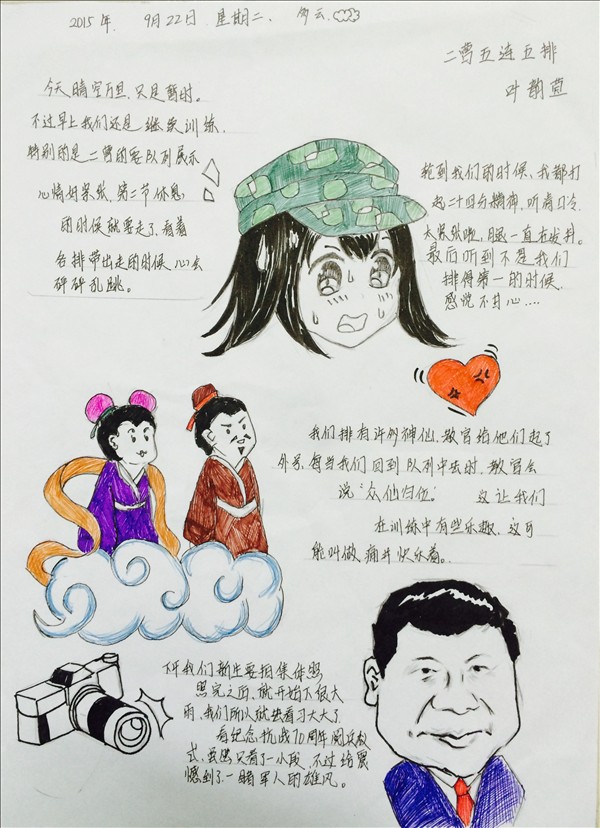 2015年 9月22日 星期二. 多云
二营五连五排
叶韵萱
今天晴空万里,只是暂时。
不过早上我们还是继续训练,
特别的是二营的要队列展示
心情好紧张,第二节休息
的时候就要走了,看着
各排带出走的时候,心会
砰砰乱跳。
轮到我们的时候,我都打
起二十四分精神,听着口令.
太紧张啦,腿一直在发抖。
最后听到不是我们
排得第一的时候
感觉不开心....
我们排有许多神仙,教官给他们起了
外号,每当我们回到队列中去时,教官会
说"众仙归位" 这让我们
在训练中有些乐趣,这可
能叫做痛并快乐着。
下午我们新生要拍集体照
照完之后,就开始下很大
雨,我们所以就去看习大大了
看纪念抗战70周年阅兵仪
式,虽然只看了一小段,不过均震
憾到了一睹军人的雄风。